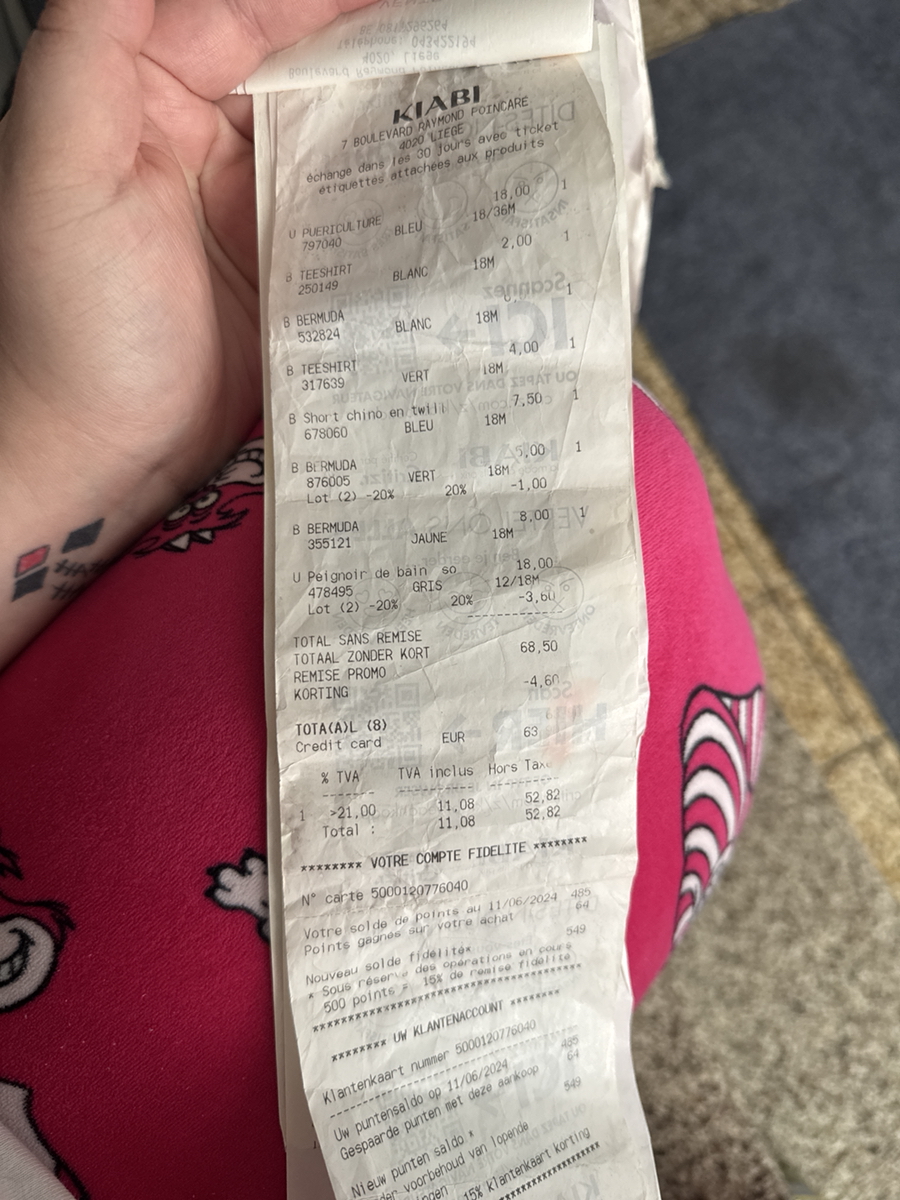 Boulevard Raymond
4020, Liege
Téléphone: 043422194
BE 0815296264
KIABI
7 BOULEVARD RAYMOND POINCARE
4020 LIEGE
échange dans les 30 jours avec ticket
étiquettes attachées aux produits
18,00 1
U PUERICULTURE BLEU 18/36M
797040
2,00 1
B TEESHIRT BLANC 18M
250149
1
B BERMUDA BLANC 18M
532824
4,00 1
B TEESHIRT VERT 18M
317639
B Short chino en twill 7,50 1
678060 BLEU 18M
B BERMUDA 5,00 1
876005 VERT 18M
Lot (2) -20% 20% -1,00
B BERMUDA 8,00 1
355121 JAUNE 18M
U Peignoir de bain so 18,00
478495 GRIS 12/18M
Lot (2) -20% 20% -3,60
TOTAL SANS REMISE
TOTAAL ZONDER KORT 68,50
REMISE PROMO
KORTING -4,60
TOTA(A)L (8)
Credit card EUR 63
% TVA TVA inclus Hors Taxe
1 >21,00 11,08 52,82
Total : 11,08 52,82
******** VOTRE COMPTE FIDELITE ********
N° carte 5000120776040
Votre solde de points au 11/06/2024 485
Points gagnés sur votre achat 64
Nouveau solde fidélité* 549
* Sous réserve des opérations en cours
500 points = 15% de remise fidélité
******** UW KLANTENACCOUNT ********
Klantenkaart nummer 5000120776040
Uw puntensaldo op 11/06/2024 485
Gespaarde punten met deze aankoop 64
Nieuw punten saldo * 549
voorbehoud van lopende
15% Klantenkaart korting